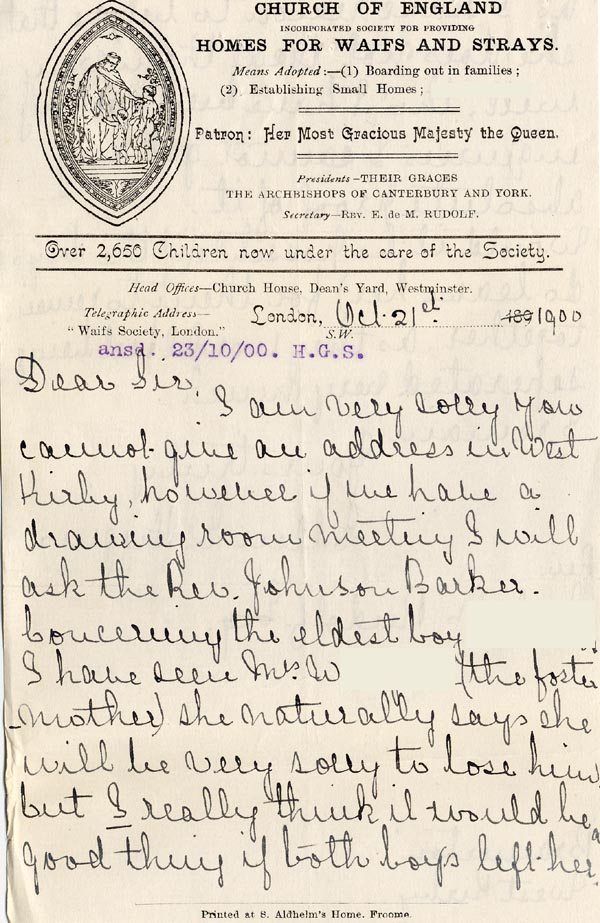 CHURCH OF ENGLAND
INCORPORATED SOCIETY FOR PROVIDING
HOMES FOR WAIFS AND STRAYS.
Means Adopted:—(1) Boarding out in families;
(2) Establishing Small Homes;
Patron: Her Most Gracious Majesty the Queen.
Presidents—THEIR GRACES
THE ARCHBISHOPS OF CANTERBURY AND YORK.
Secretary—REV. E. de M. RUDOLF.
Over 2,650 Children now under the care of the Society.
Head Offices—Church House, Dean's Yard, Westminster.
Telegraphic Address—
"Waifs Society, London."
London, Oct. 21st 189 1900
S.W.
ansd. 23/10/00. H.G.S.
Dear Sir,
I am very sorry you
cannot give an address in West
Kirby, however if we have a
drawing room meeting I will
ask the Rev. Johnson Barker.
Concerning the eldest boy
I have seen Mrs W (the foster
mother) she naturally says she
will be very sorry to lose him
but I really think it would be a
good thing if both boys left her.
Printed at S. Aldhelm's Home. Froome.